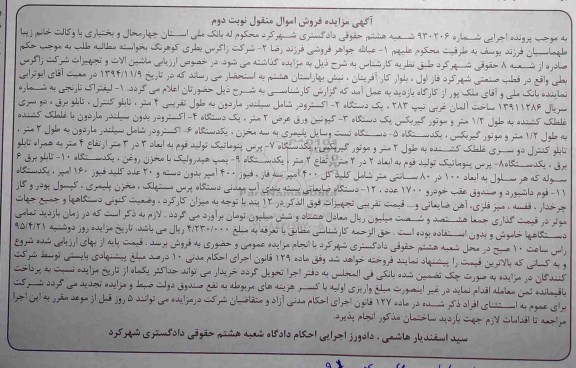 آگهی مزایده فروش اموال منقول نوبت دوم
به موجب پرونده اجرایی شماره ۹۳۰۲۰۶ شعبه هشتم حقوقی دادگستری شهرکرد محکوم له بانک ملی استان چهارمحال و بختیاری با وکالت خانم زیبا
طهماسبیان فرزند یوسف به طرفیت محکوم علیهم ۱- عبدالله جواهر فروشی فرزند رضا ۲- شرکت زاگرس بطری کوهرنگ بخواسته مطالبه طلب به موجب حکم
صادره از شعبه ۸ حقوقی شهرکرد طبق نظریه کارشناس به شرح ذیل به مزایده گذاشته می شود. در خصوص ارزیابی ماشین الات و تجهیزات شرکت زاگرس
بطی واقع در قطب صنعتی شهرکرد فاز اول ، بلوار کار آفرینان ، نبش بهارستان هشتم به استحضار می رساند که در تاریخ ۱۳۹۴/۱۱/۹ در معیت آقای ابوترابی
نماینده بانک ملی و آقای ملک پور از کارگاه بازدید به عمل آمد که گزارش کارشناسی به شرح ذیل حضورتان اعلام می گردد. ۱- لیفتراک نارنجی به شماره
سریال ۱۳۹۱۱۲۸۶ ساخت آلمان غربی تیپ ۲۸۳ ، یک دستگاه ۲- اکسترودر شامل سیلندر ماردون به طول تقریبی ۴ متر ، تابلو کنترل ، تابلو برق ، دو سری
غلطک کشنده به طول ۱/۲ متر و موتور گیربکس یک دستگاه ۳- گیوتین ورق عرض ۲ متر ، یک دستگاه ۴- اکسترودر بدون سیلندر ماردون با غلطک کشنده
به طول ۱/۲ متر و موتور گیربکس ، یکدستگاه ۵- دستگاه تست وسایل پلیمری به سه مخزن ، یکدستگاه ۶- اکسترودر شامل سیلندر ماردون به طول ۲ متر ،
تابلو کنترل دو سری غلطک کشنده به طول ۲ متر و موتور گیربکس یکدستگاه ۷- پرس پنوماتیک تولید فوم به ابعاد ۳ در ۳ متر ارتفاع ۴ متر به همراه تابلو
برق ، یکدستگاه ۸- پرس پنوماتیک تولید فوم به ابعاد ۲ در ۲ متر ارتفاع ۲ متر ، یکدستگاه ۹- پمپ هیدرولیک با مخزن روغن ، یکدستگاه ۱۰- تابلو برق ۶
سوله که هر سلول به ابعاد ۱۰۰ در ۸۰ سانتی متر شامل کلید کل ۴۰۰ آمپر سه فاز ، فیوز ۴۰۰ آمپر بدون دسته و ۲۰ عدد کلید فیوز ۱۶۰ آمپر ، یکدستگاه
۱۱- فوم داشبورد و صندوق عقب خودرو ۱۷۰۰ عدد ، ۱۲- دستگاه ضایعاتی بسته بندی آب معدنی دستگاه پرس مستهلک ، مخزن پلیمری ، کپسول پودر و گاز
چرخدار ، قفسه ، میز فلزی، آهن ضایعاتی و... قیمت تقریبی تجهیزات فوق الذکر در ۱۲ بند با توجه به میزان کارکرد ، وضعیت کنونی دستگاهها و جمیع جهات
موثر در قیمت گذاری جمعا هشتصد و شصت میلیون ریال معادل هشتاد و شش میلیون تومان برآورد می گردد . لازم به ذکر است که در زمان بازدید تمامی
دستگاهها خاموش و بدون استفاده بوده است . حق الزحمه کارشناس مطابق با تعرفه به مبلغ ۴/۲۳۰/۰۰۰ ریال می باشد. تاریخ مزایده روز دوشنبه ۹۵/۴/۲۱
راس ساعت ۱۰ صبح در محل شعبه هشتم حقوقی دادگستری شهرکرد با انجام مزایده عمومی و حضوری به فروش برسد . قیمت پایه از بهای ارزیابی شده شروع
و به کسانی که بالاترین قیمت را پیشنهاد نمایند فروخته خواهد شد وفق ماده ۱۲۹ قانون اجرای احکام مدنی ۱۰ درصد مبلغ پیشنهادی بایستی توسط شرکت
کنندگان در مزایده به صورت چک تضمین شده بانکی فی المجلس به دفتر اجرا تحویل گردد خریدار می تواند حداکثر یکماه از تاریخ مزایده نسبت به پرداخت
باقیمانده ثمن معامله اقدام نماید در غیر اینصورت مبلغ واریزی اولیه با کسر هزینه های مربوطه به نفع صندوق دولت ضبط و مزایده تجدید می گردد شرکت
برای عموم به استثنای افراد ذکر شده در ماده ۱۲۷ قانون اجرای احکام مدنی آزاد و متقاضیان شرکت درمزایده می توانند ۵ روز قبل از موعد مقرر به این اجرا
مراجعه تا اقدامات لازم جهت بازدید ساختمان مذکور انجام پذیرد.
سید اسفندیار هاشمی ، دادورز اجرایی احکام دادگاه شعبه هشتم حقوقی دادگستری شهرکرد